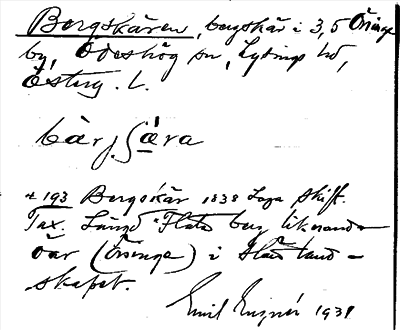 Bergskären, bergskär i 3,5 Öninge
by, Ödeshög sn, Lysings hd,
Österg. L.
bärjʃæ̀ra
+ 193 Bergskär 1838 Laga Skift.
Tax. Längd "Flata berg liknande
öar (Öninge) i slättland-
skapet.
Emil Engnér 1931